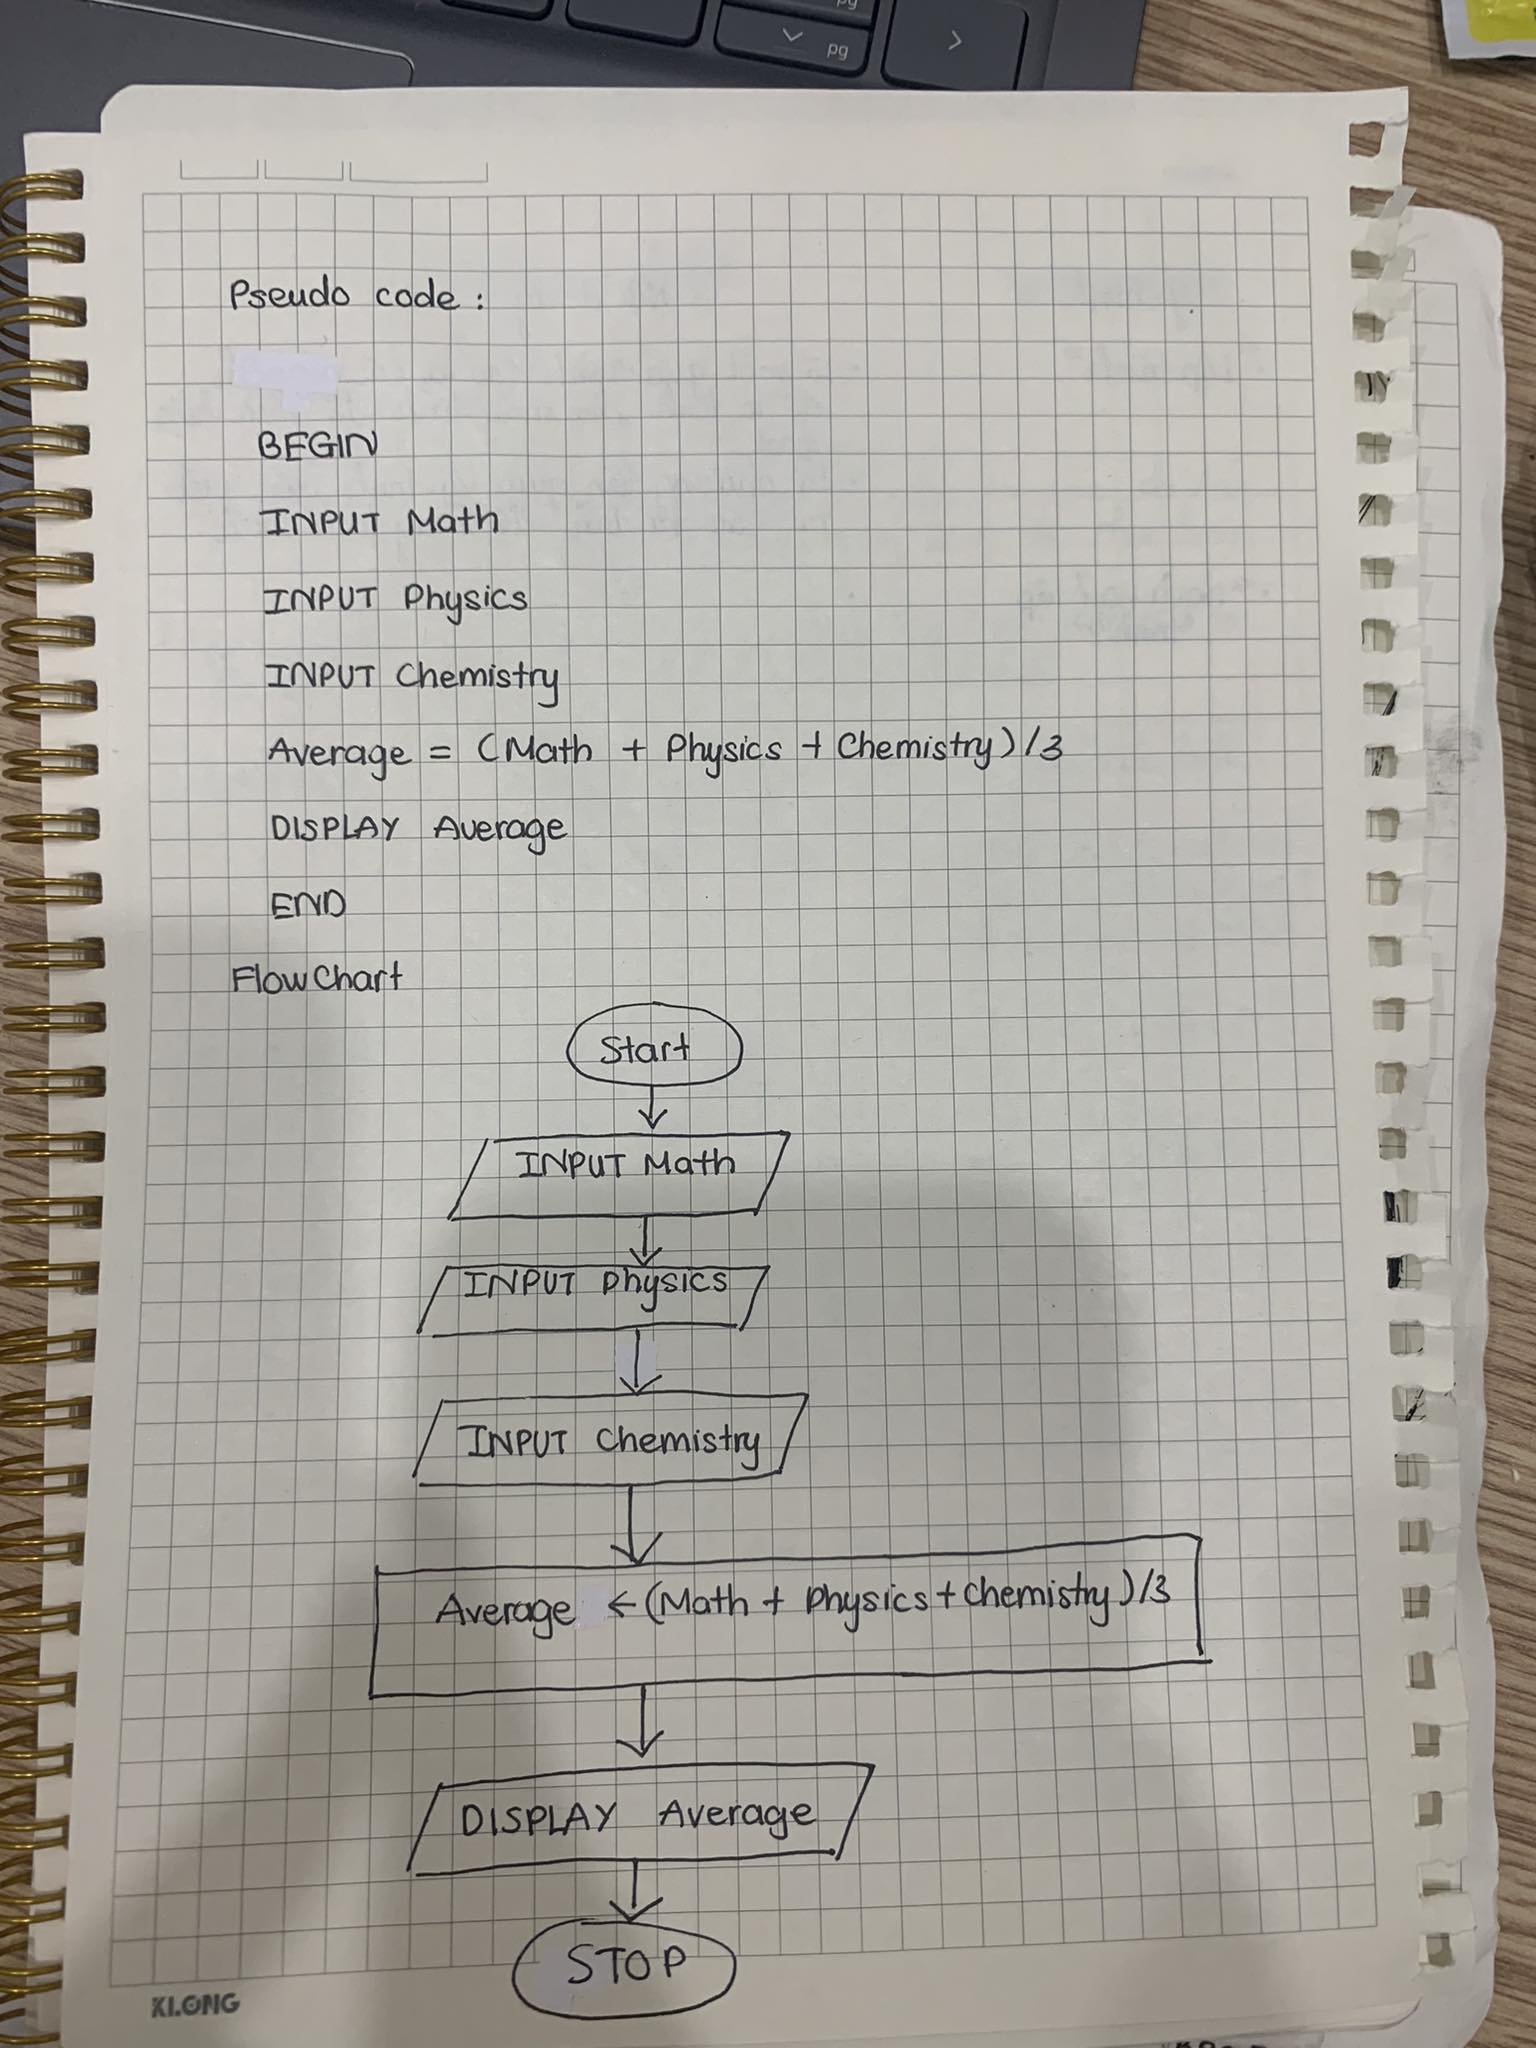 pg
pg
Pseudo code :
BEGIN
INPUT Math
INPUT Physics
INPUT Chemistry
Average = (Math + Physics + Chemistry) / 3
DISPLAY Average
END
Flow Chart
Start
INPUT Math
INPUT physics
INPUT Chemistry
Average ← (Math + physics + chemistry) / 3
DISPLAY Average
STOP
KLONG